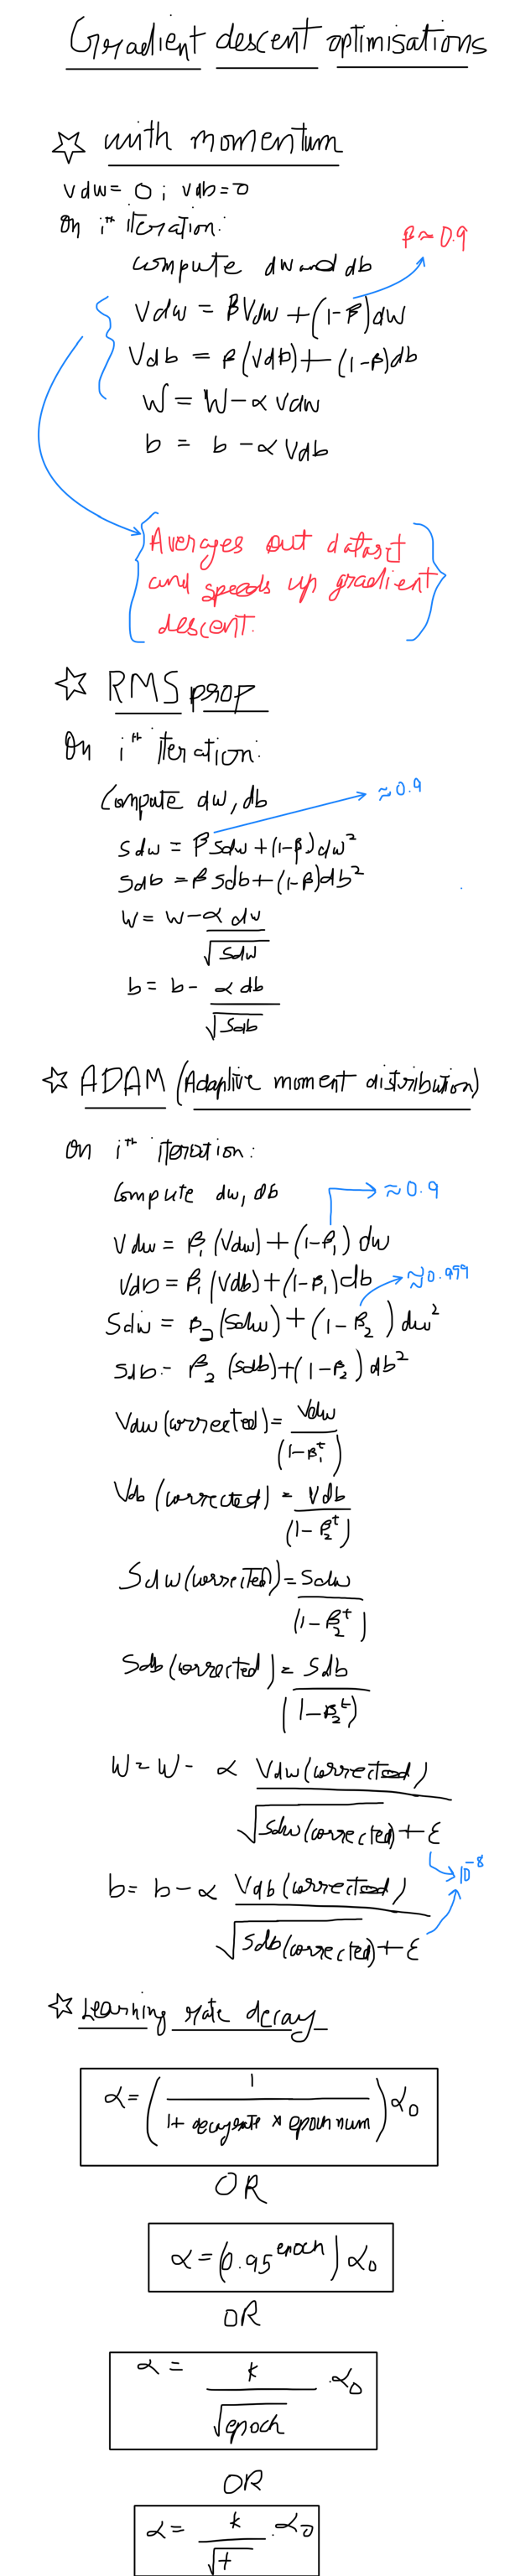 Gradient descent optimisations
☆ with momentum
Vdw = 0 ; Vdb = 0
On iᵗʰ iteration:
β ≈ 0.9
compute dw and db
Vdw = βVdw + (1-β)dw
Vdb = β(Vdb) + (1-β)db
W = W - α Vdw
b = b - α Vdb
Averages out dataset
and speeds up gradient
descent.
☆ RMS prop
On iᵗʰ iteration:
Compute dw, db
≈ 0.9
Sdw = β Sdw + (1-β) dw²
Sdb = β Sdb + (1-β) db²
W = W - α dw / √Sdw
b = b - α db / √Sdb
☆ ADAM (Adaptive moment distribution)
On iᵗʰ iteration:
Compute dw, db
≈ 0.9
Vdw = β₁ (Vdw) + (1-β₁) dw
Vdb = β₁ (Vdb) + (1-β₁) db
≈ 0.999
Sdw = β₂ (Sdw) + (1-β₂) dw²
Sdb = β₂ (Sdb) + (1-β₂) db²
Vdw (corrected) = Vdw / (1-β₁ᵗ)
Vdb (corrected) = Vdb / (1-β₂ᵗ)
Sdw (corrected) = Sdw / (1-β₂ᵗ)
Sdb (corrected) = Sdb / (1-β₂ᵗ)
W = W - α Vdw (corrected) / √Sdw (corrected) + ε
10⁻⁸
b = b - α Vdb (corrected) / √Sdb (corrected) + ε
☆ Learning rate decay
α = (1 / 1 + decayrate × epoch num) α₀
OR
α = (0.95^epoch) α₀
OR
α = k / √epoch . α₀
OR
α = k / √t . α₀